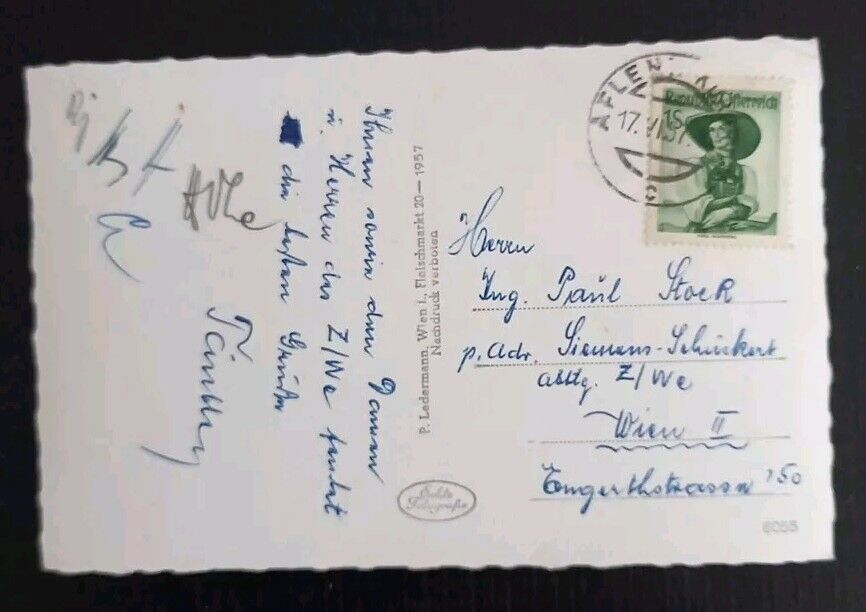 Ihnen sowie den Damen
u. Herren der Z/We sendet
die besten Grüße
P. Ledermann, Wien I., Fleischmarkt 20 — 1957
Nachdruck verboten
Echte
Fotografie
AFLENZ
17.VI.57
1S
Republik Österreich
Herrn
Ing. Paul Stock
p. Adr. Siemens-Schuckert
abtlg. Z/We
Wien II
Engerthstrasse 150
6055